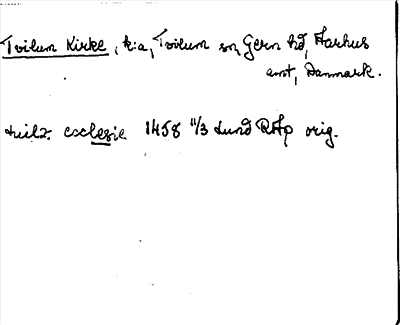 Tvilum Kirke, k:a, Tvilum sn, Gern hd, Aarhus
amt, Danmark.
tuilz. ecclesie 1458 11/3 Lund RAp orig.